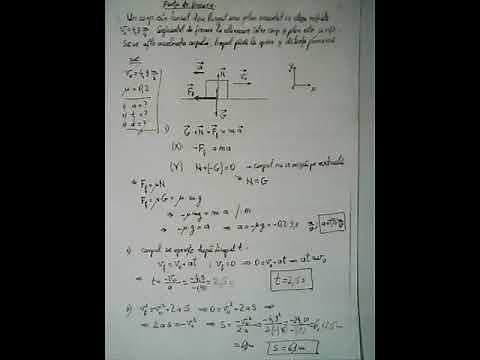 Un corp este lansat de-a lungul unui plan orizontal cu viteza inițială
v₀=4,9 m/s. Coeficientul de frecare la alunecare între corp și plan este μ=0,2
Să se afle accelerația corpului, timpul până la oprire și distanța parcursă
v₀=4,9 m/s
μ=0,2
a=?
t=?
d=?
a
N
v₀
F_f
G
y
x
1) G+N+F_f=m a
(X) -F_f=ma
(Y) N+(-G)=0 → corpul nu se mișcă pe verticală
F_f=μN
N=G
F_f=μG=μmg
⇒ -μmg=ma /:m
⇒ -μg=a ⇒ a=-μg=-0,2·9,8
2) corpul se oprește după timpul t
v_f=v₀+at; v_f=0 ⇒ 0=v₀+at ⇒ at=-v₀
⇒ t=-v₀/a=-4,9/-1,96=2,5s
t=2,5s
3) v_f²=v₀²+2aS ⇒ 0=v₀²+2aS
⇒ 2aS=-v₀² ⇒ S=-v₀²/2a
=6,125m